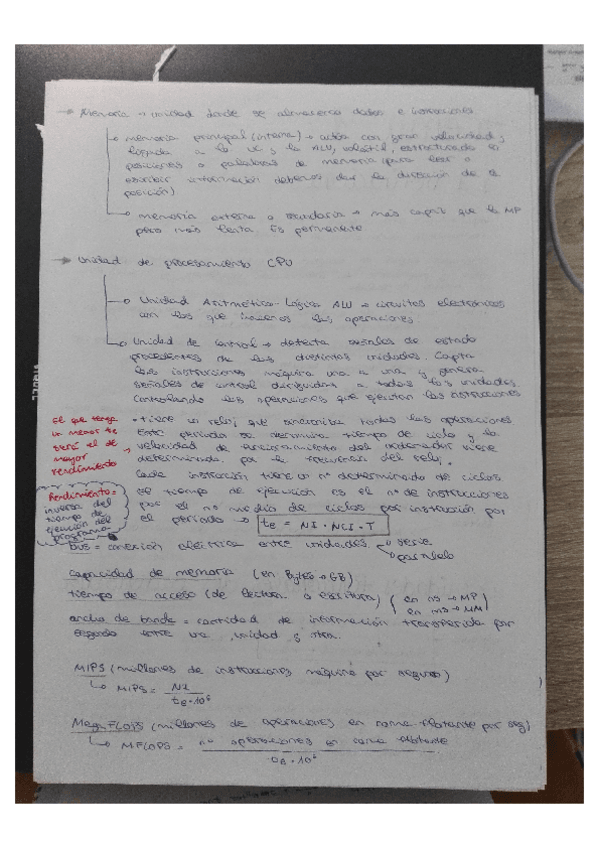 → Memoria → unidad donde se almacenan datos e instrucciones
memoria principal (interna) → actúa con gran velocidad,
ligada a la UC y la ALU, volátil, estructurada en
posiciones o palabras de memoria (para leer o
escribir información debemos dar la dirección de la
posición)
memoria externa o secundaria → más capac. que la MP
pero más lenta. Es permanente
→ Unidad de procesamiento CPU
Unidad Aritmético-Lógica ALU → circuitos electrónicos
con los que hacemos las operaciones
Unidad de control → detecta señales de estado
procedentes de las distintas unidades. Capta
las instrucciones máquina una a una y genera
señales de control dirigidas a todas las unidades.
Controlando las operaciones que ejecutan las instrucciones
• tiene un reloj que sincroniza todas las operaciones
Este periodo se denomina tiempo de ciclo y la
velocidad de funcionamiento del ordenador viene
determinada por la frecuencia del reloj.
Cada instrucción tiene un nº determinado de ciclos
el tiempo de ejecución es el nº de instrucciones
por el nº medio de ciclos por instrucción por
el periodo → te = NI · NCI · T
El que tenga
un menor te
será el de
mayor
rendimiento
Rendimiento =
inversa del
tiempo de
ejecución del
programa
Bus = conexión eléctrica entre unidades
serie
paralelo
capacidad de memoria (en Bytes → GB)
tiempo de acceso (de lectura o escritura) (en ns → MP
en ms → MM)
ancho de banda = cantidad de información transferida por
segundo entre una unidad y otra.
MIPS (millones de instrucciones máquina por segundo)
↳ MIPS = NI / te · 10⁶
MegaFLOPS (millones de operaciones en coma flotante por seg)
↳ MFLOPS = nº operaciones en coma flotante
te · 10⁶